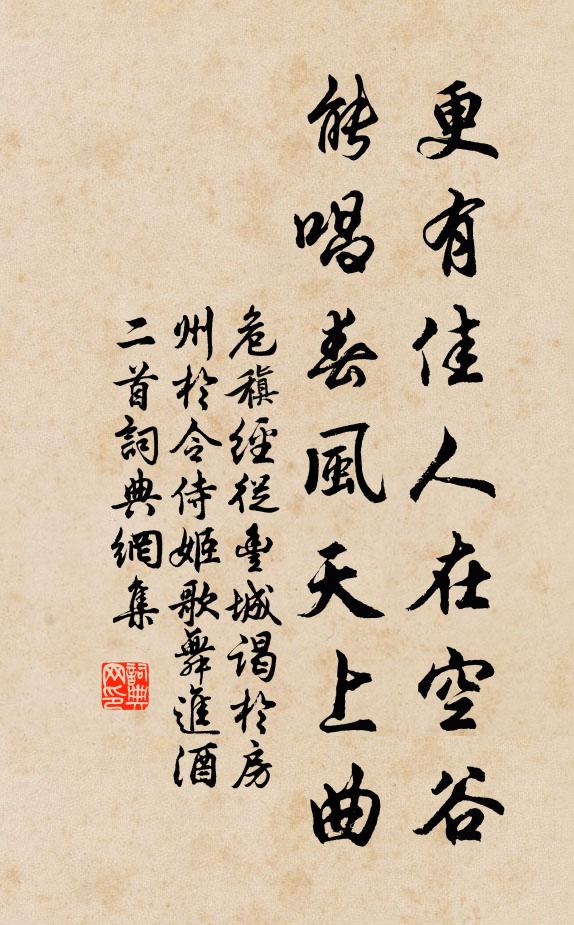 更有佳人在空谷
能唱春風天上曲
危稹經從豐城謁於房
州於令侍姬歌舞進酒
二首詞典網集
詞典网印